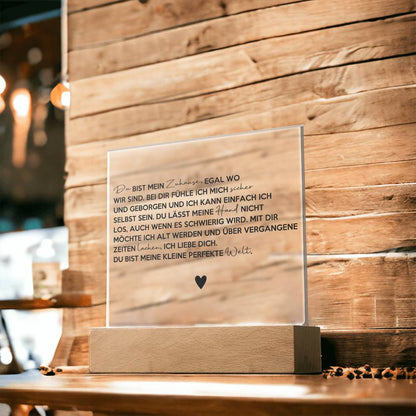 Du BIST MEIN Zuhause, EGAL WO
WIR SIND. BEI DIR FÜHLE ICH MICH sicher
UND GEBORGEN UND ICH KANN EINFACH ICH
SELBST SEIN. DU LÄSST MEINE Hand NICHT
LOS, AUCH WENN ES SCHWIERIG WIRD. MIT DIR
MÖCHTE ICH ALT WERDEN UND ÜBER VERGANGENE
ZEITEN lachen. ICH LIEBE DICH.
DU BIST MEINE KLEINE PERFEKTE Welt.